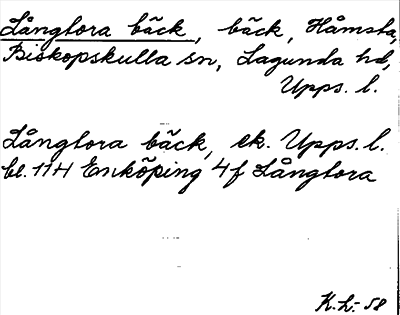 Långtora bäck, bäck, Håmsta,
Biskopskulla sn, Lagunda hd,
Upps. l.
Långtora bäck, ek. Upps. l.
bl. 11H Enköping 4f Långtora
K.h. -58